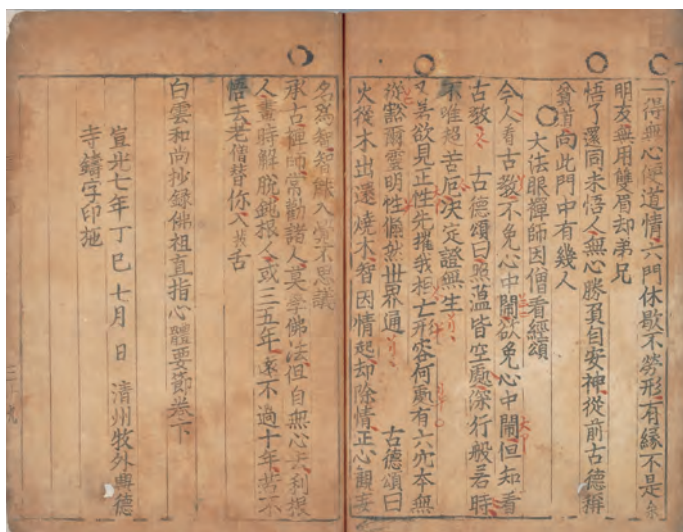 一得無心便道情六門休歇不勞形有緣不是余
朋友無用雙眉却弟兄
悟了還同未悟人無心勝負自安神從前古德稱
貧道向此門中有幾人
大法眼禪師因僧看經頌
今人看古教不免心中鬧欲免心中鬧但知看
古教 古德頌曰照蘊皆空處深行般若時
不唯超苦厄決定證無生
又若欲見正性先摧我相亡形容何處有六宂本無
從豁爾靈明性翛然世界通 古德頌曰
火從木出還燒木智因情起却除情正心觀妄
名爲智智入不思議
承古禪師常勸諸人莫學佛法但自無心去利根
人晝時解脫鈍根人或三五年遠不過十年若不
悟去老僧替你入拔舌
白雲和尚抄錄佛祖直指心體要節卷下
宣光七年丁巳七月 日 清州牧外興德
寺鑄字印施